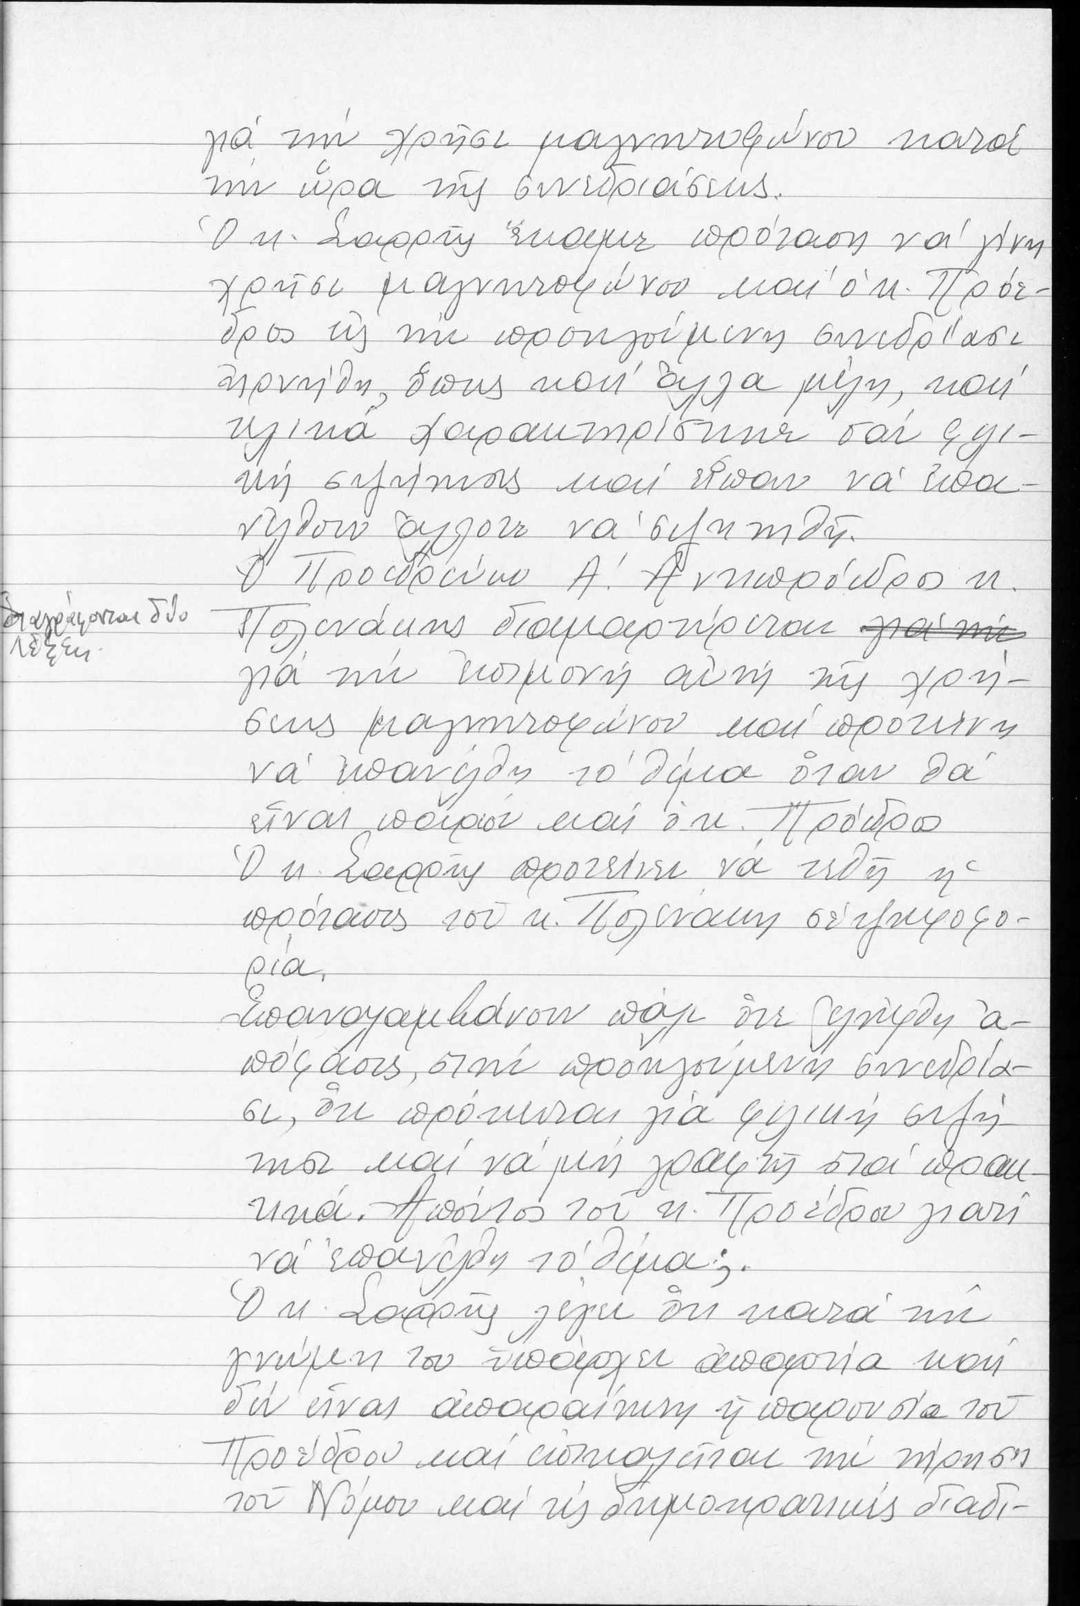 γιά τήν χρῆσι μαγνητοφώνου κατά
τήν ὥρα τῆς συνεδριάσεως.
Ὁ κ. Σαρρῆς ἔκαμε πρόταση νά γίνη
χρῆσι μαγνητοφώνου καί ὁ κ. Πρόε-
δρος εἰς τήν προηγούμενη συνεδρίασι
ἠρνήθη, ὅπως καί ἄλλα μέλη, καί
τελικά χαρακτηρίστηκε σάν φιλι-
κή συζήτησις καί εἶπαν νά ἐπα-
νέλθουν ἄλλοτε νά συζητηθῆ.
Ὁ Προεδρεύων Α! Ἀντιπρόεδρος κ.
Πολενάκης διαμαρτύρεται γιά τήν
διαγράφονται δύο
λέξεις.
γιά τήν ἐπιμονή αὐτή τῆς χρή-
σεως μαγνητοφώνου καί προτείνη
νά ἐπανέλθη τό θέμα ὅταν θά
εἶναι παρών καί ὁ κ. Πρόεδρος
Ὁ κ. Σαρρῆς προτείνει νά τεθῆ ἡ
πρότασις τοῦ κ. Πολενάκη σέ ψηφοφο-
ρία.
Ἐπαναλαμβάνουν πάλι ὅτι ἐλήφθη ἀ-
πόφασις, στήν προηγούμενη συνεδρία-
σι, ὅτι πρόκειται γιά φιλική συζή-
τησι καί νά μή γραφῆ στά πρακ-
τικά. Ἀπόντος τοῦ κ. Προέδρου γιατί
νά ἐπανέλθη τό θέμα;.
Ὁ κ. Σαρρῆς λέγει ὅτι κατά τήν
γνώμη του ὑπάρχει ἀπαρτία καί
δέν εἶναι ἀπαραίτητη ἡ παρουσία τοῦ
Προέδρου καί ἐπικαλεῖται τήν τήρηση
τοῦ Νόμου καί τίς δημοκρατικές διαδι-